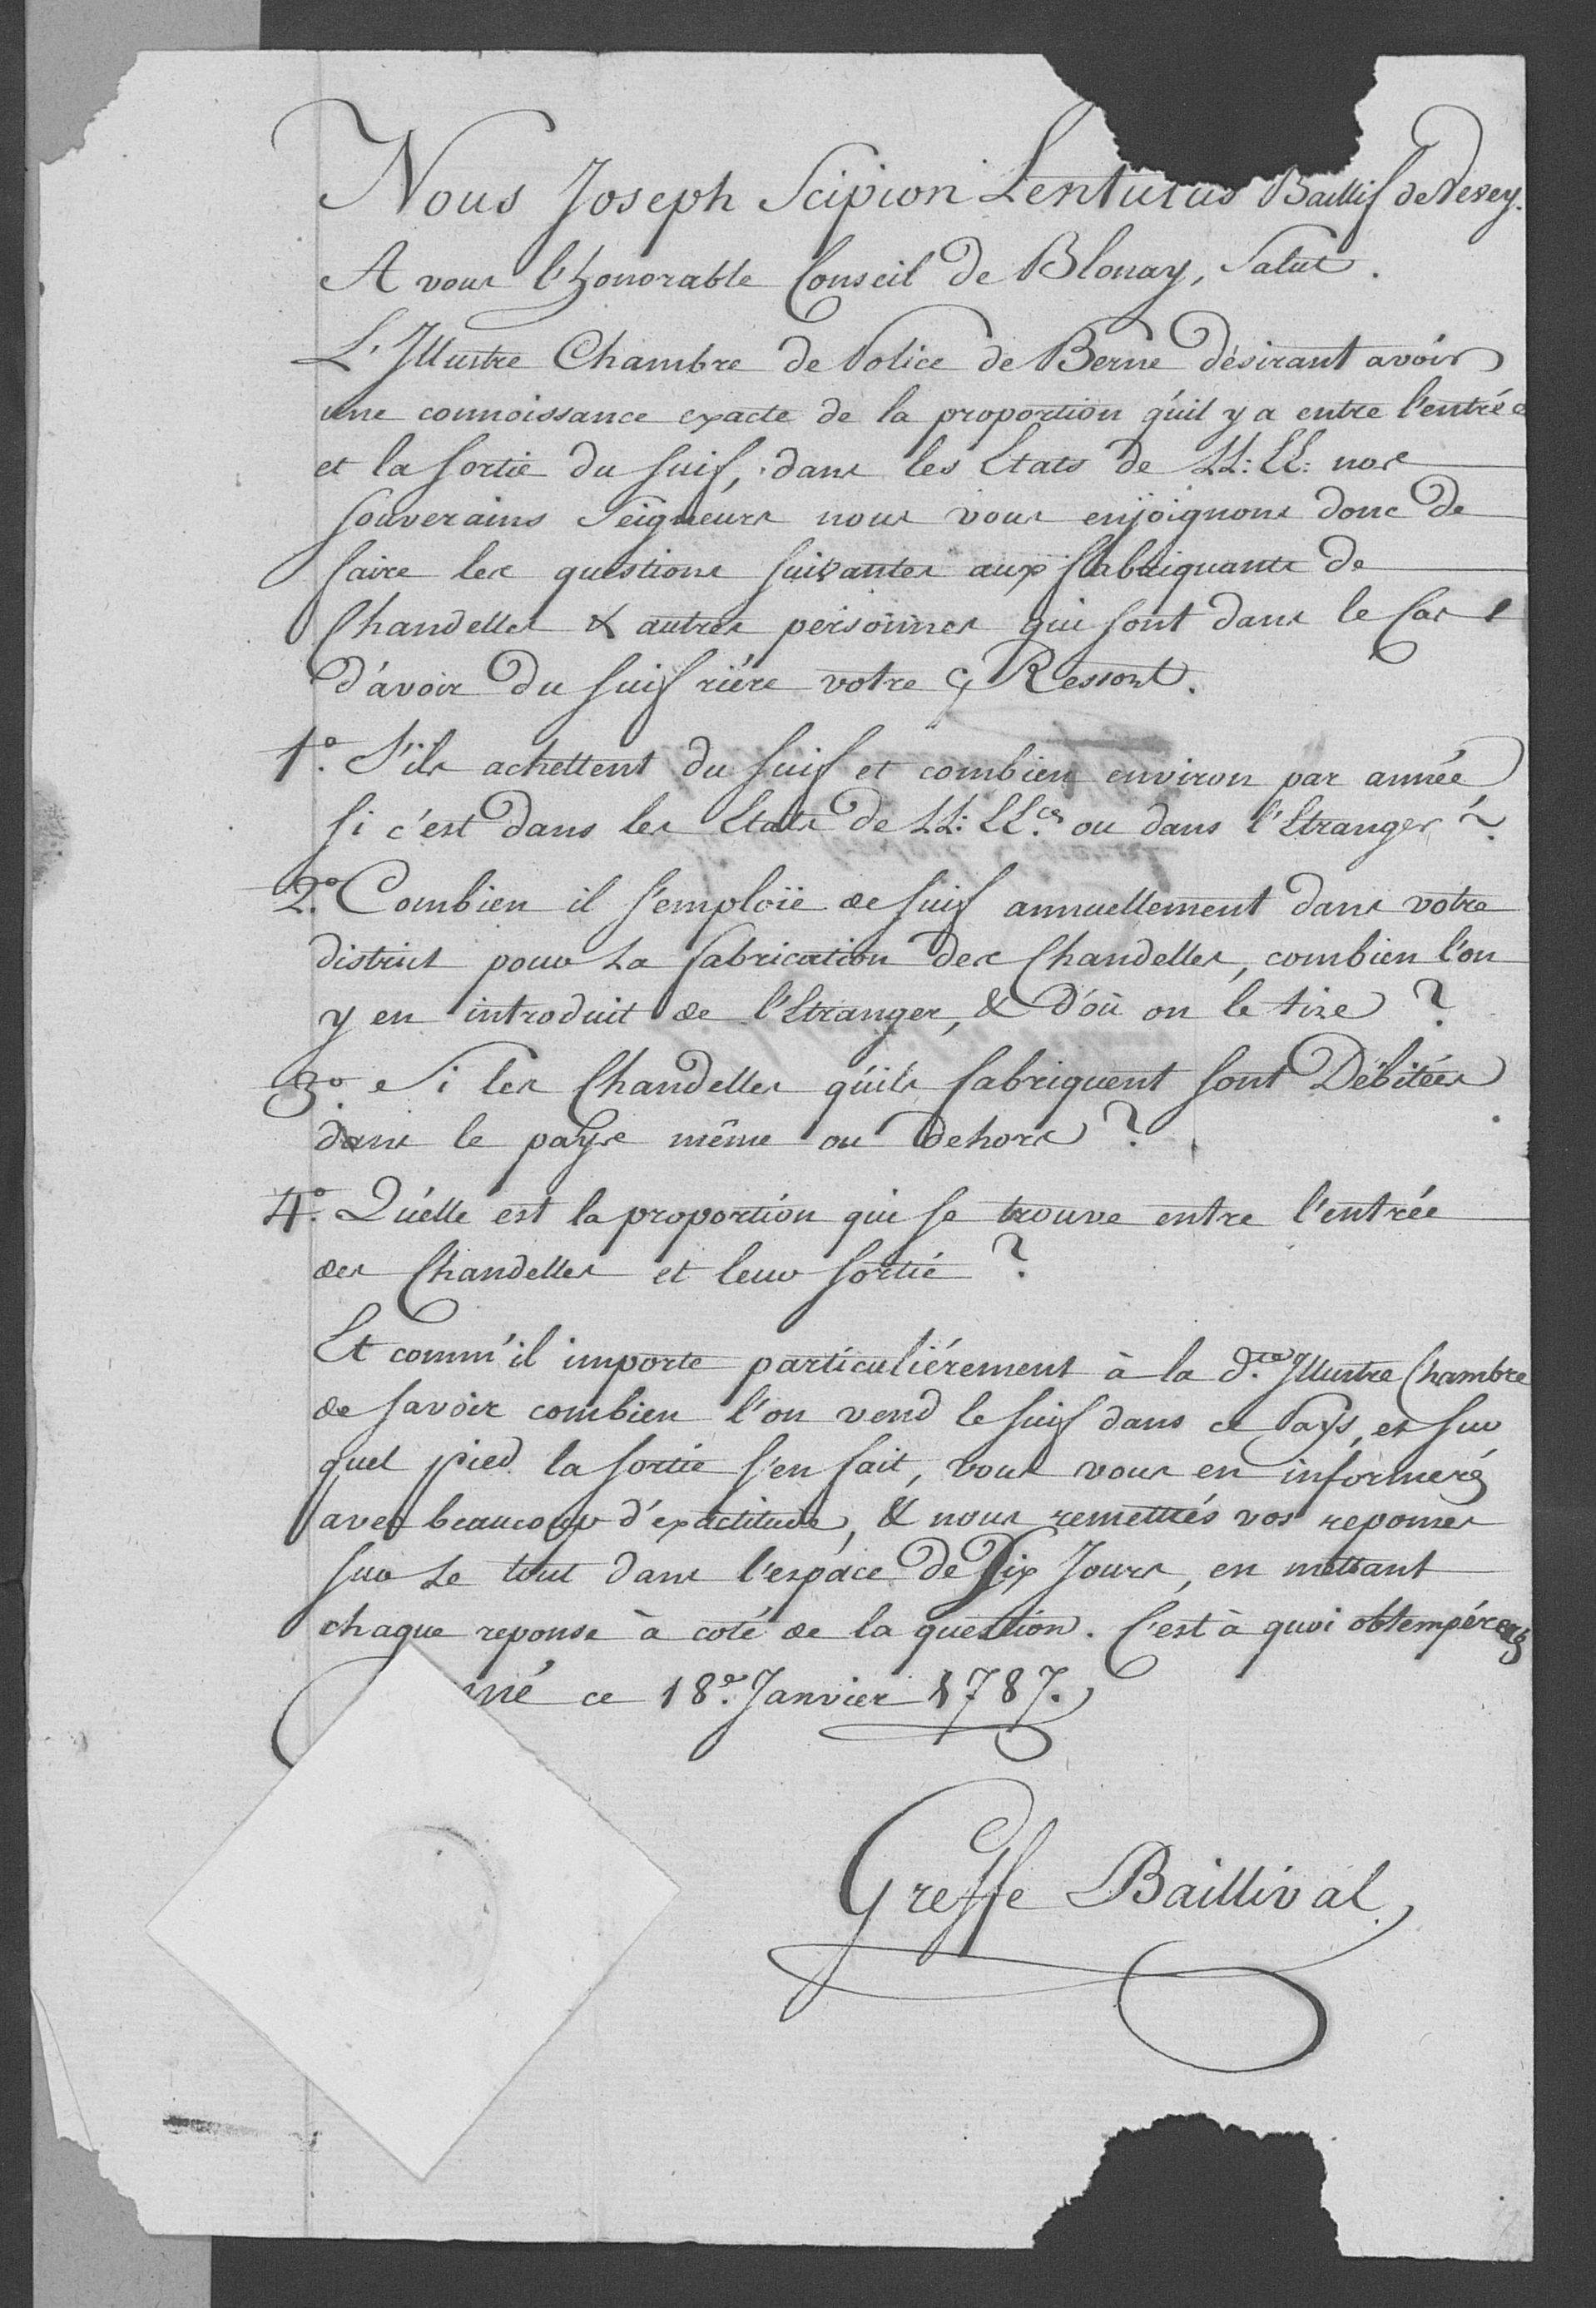 Nous Joseph Scipion Lentulus Baillif de Vevey.
A vous l'honorable Conseil de Blonay, Salut.
L'Illustre Chambre de Police de Berne désirant avoir
une connoissance exacte de la proportion qu'il y a entre l'entrée
et la sortie du suif, dans les Etats de LL: EE: nos
souverains Seigneurs nous vous enjoignons donc de
faire les questions suivantes aux fabriquants de
Chandelles & autres personnes qui sont dans le Cas
d'avoir du suif riére votre Ressort.
1º. S'ils achettent du suif et combien environ par année
si c'est dans les Etats de LL: EE.ces ou dans l'Etranger?
2º. Combien il s'emploïe de suif annuellement dans votre
district pour La fabrication des Chandelles, combien l'on
y en introduit de l'Etranger, & d'où on le tire?
3º. Si les Chandelles qu'ils fabriquent sont Débitées
dans le pays même ou dehors?
4º. Quelle est la proportion qui se trouve entre l'entrée
des Chandelles et leur sortie?
Et comm'il importe particuliérement à la d.te Illustre Chambre
de savoir combien l'on vend le suif dans ce Pays, et sur
quel pied la sortie s'en fait, vous vous en informerés
avec beaucoup d'exactitude, & nous remettrés vos reponses
sur Le tout dans l'espace de Dix Jours, en mettant
chaque reponse à coté de la question. C'est à quoi obtempérerés
nné ce 18e. Janvier 1787.
Greffe Baillival.